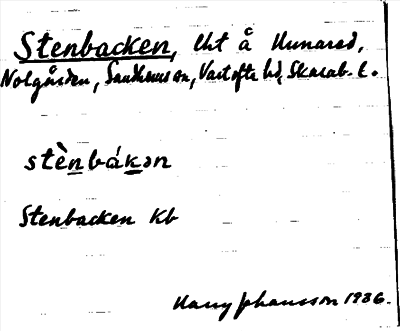 Stenbacken, lht å Hunared,
Nolgården, Sandhems sn, Vartofta hd, Skarab. l.
stènbákən
Stenbacken Kb
Harry Johansson 1936.